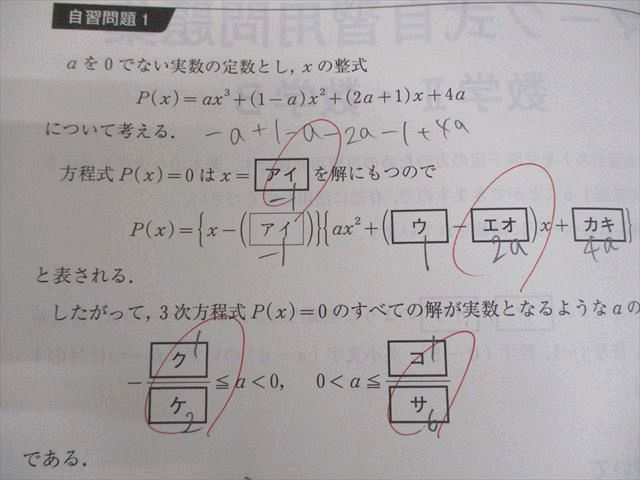 自習問題 1
aを0でない実数の定数とし，xの整式
P(x)=ax³+(1−a)x²+(2a+1)x+4a
について考える．
-a+1-a-2a-1+4a
方程式P(x)=0はx= アイ を解にもつので
-1
P(x)={x−( アイ )}{ax²+( ウ − エオ )x+ カキ }
-1 1 2a 4a
と表される．
したがって，3次方程式P(x)=0のすべての解が実数となるようなaの
1 1
− ク/ケ ≦a<0， 0<a≦ コ/サ
2 6
である．